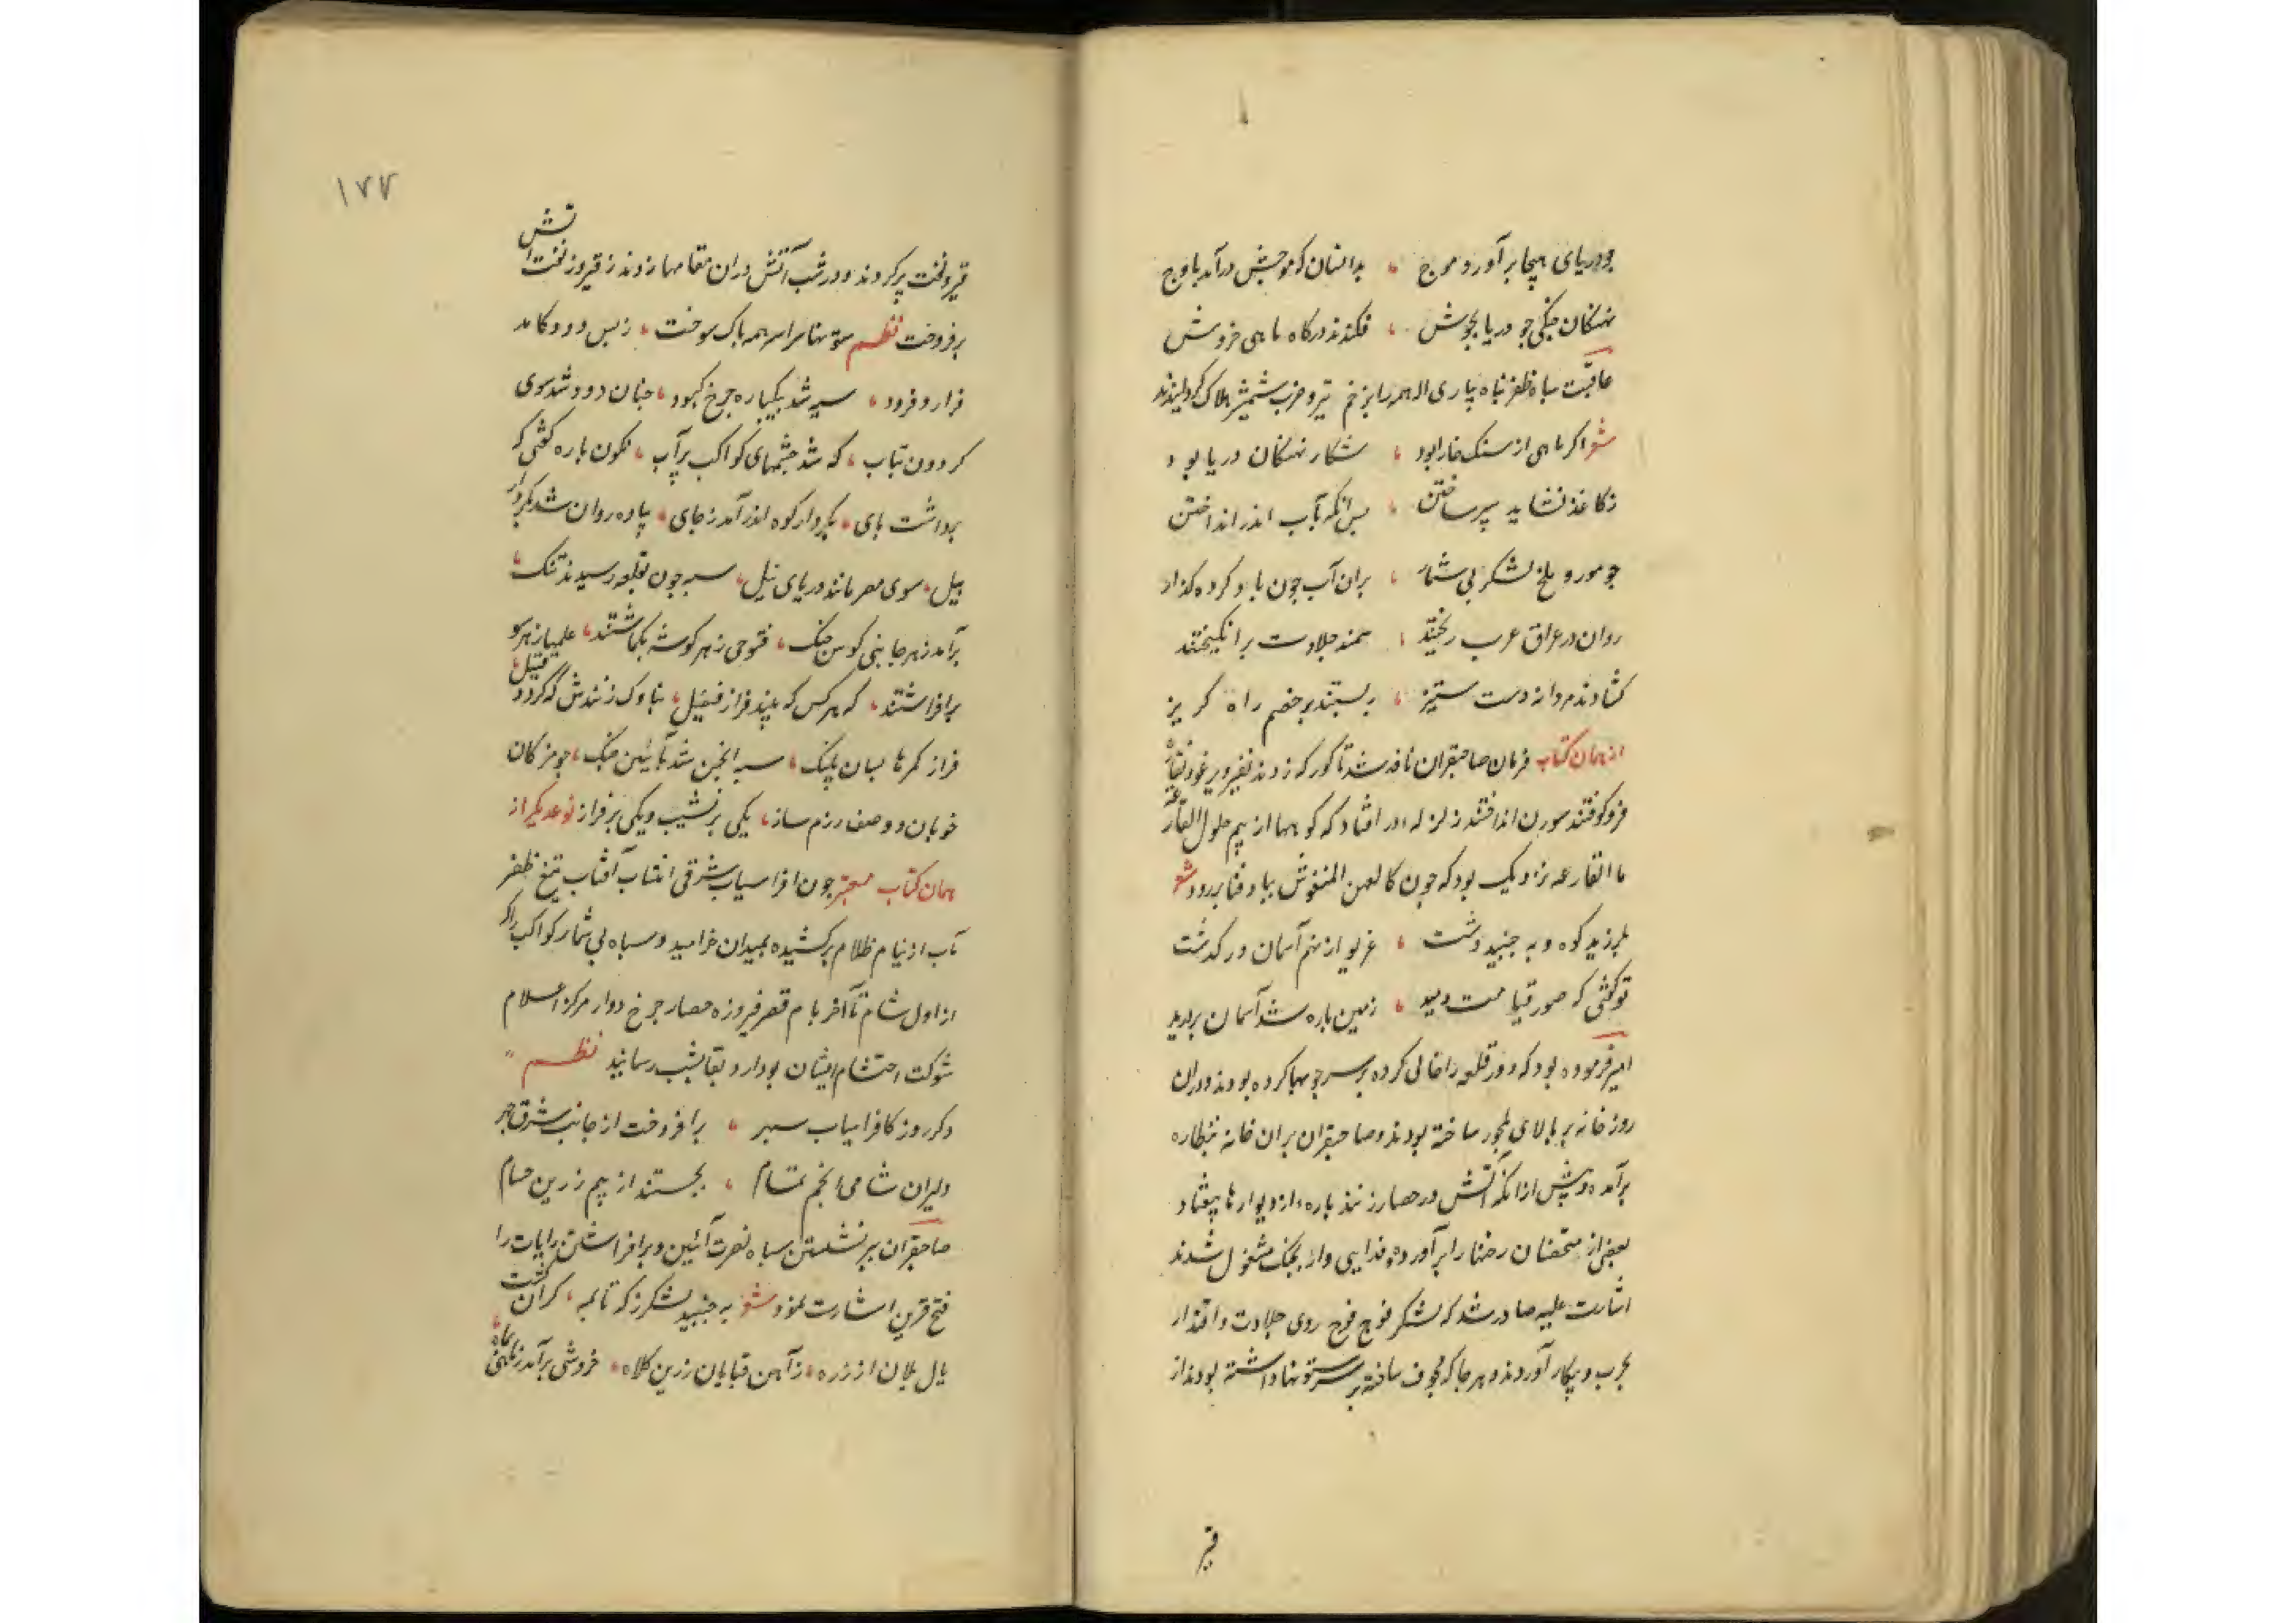 چو دریای هیجا برآورد موج ، بدانسان که موجش درآمد باوج
نهنکان جنکی چو دریا بجوش ، فکندند در کاه ماهی خروش
عاقبت سپاه ظفر پناه یاری اله همه را بزخم تیر و ضرب شمشیر هلاک کردانیدند
شعر اگر ماهی از سنک خارا بود ، شکار نهنکان دریا بود
ز کاغذ نشاید سپر ساختن ، پس انکه بآب اندر انداختن
چو مور و ملخ لشکر بی شمار ، بران آب چون باد کرده کذار
روان در عراق عرب ریختند ، سمند جلادت برانکیختند
کشادند مردانه دست ستیز ، ببستند بر خصم راه کریز
از همان کتاب فرمان صاحبقران نافذ شد تا کورکه زدند نفیر و برغو و نقاره
فرو کوفتند سورن انداختند زلزله در افتاد که کوهها از بیم حلول القارعة
ما القارعه نزدیک بود که چون کالعهن المنفوش بباد فنا برود شعر
بلرزید کوه و بجنبید دشت ، غریو از نهم آسمان در کذشت
تو کفتی که صور قیامت دمید ، زمین پاره شد آسمان بردرید
امیر فرموده بود که دور قلعه را خالی کرده بر سر چوبها کرده بودند و دران
روز خانه بر بالای ساخته بودند و صاحبقران بران خانه بنظاره
برآمده و پیش ازانکه آتش در حصار زنند پاره از دیوارها بیفتاد
بعضی از متحصنان رخنها را برآورده و فدایی وار بجنک مشغول شدند
اشارت علیه صادر شد که لشکر فوج فوج روی جلادت و اقتدار
بحرب و پیکار آوردند و هر جا که مجوف ساخته بر ستونها داشته بودند از
قیر
۱۷۷
قیر و نفت پر کردند و در شب آتش دران مقامها زدند ز قیر و ز نفت آتش
برفروخت نظم ستونها سراسر همه پاک سوخت ، ز بس دود کامد
فراز و فرود ، سیه شد بیکباره چرخ کبود ، چنان دود شد سوی
کردون بتاب ، که شد چشمهای کواکب پر آب ، نکون باره کفتی که
برداشت پای ، بکردار کوه اندر آمد ز جای ، پیاده روان شد بکردار
پیل ، سوی مصر مانند دریای نیل ، سپه چون بقلعه رسیدند تنک ،
برآمد ز هر جانبی کوس جنک ، فتوحی ز هر کوشه بکماشتند ، علمها ز هر سو
برافراشتند ، که هر کس که بیند فراز فصیل ، بناوک زنندش که کردد قتیل ،
فراز کمرها بسان پلنک ، سپه انجمن شد بآئین جنک ، چو مژکان
خوبان دو صف رزم ساز ، یکی بر نشیب و یکی بر فراز نوعدیکر از
همان کتاب معتبر چون افراسیاب شرقی انتساب آفتاب تیغ ظفر
تاب از نیام ظلام برکشیده بمیدان خرامید و سپاه بی شمار کواکب را که
از اول شام تا آخر بام قصر فیروزه حصار چرخ دوار مرکز اعلام
شوکت احتشام ایشان بود رسانید نظم
دکر روز کافراسیاب سپهر ، برافروخت از جانب شرق چهر
دلیران شامی انجم تمام ، بجستند از بیم زرین حسام
صاحبقران ببرنشستن سپاه نصرت آئین و برافراشتن رایات را
فتح قرین اشارت نمود شعر بجنبید لشکر ز که تا بمه ، کران کشت
یال یلان از زره ، ز آهن قبایان زرین کلاه ، خروشی برآمد ز ماهی بماه ،